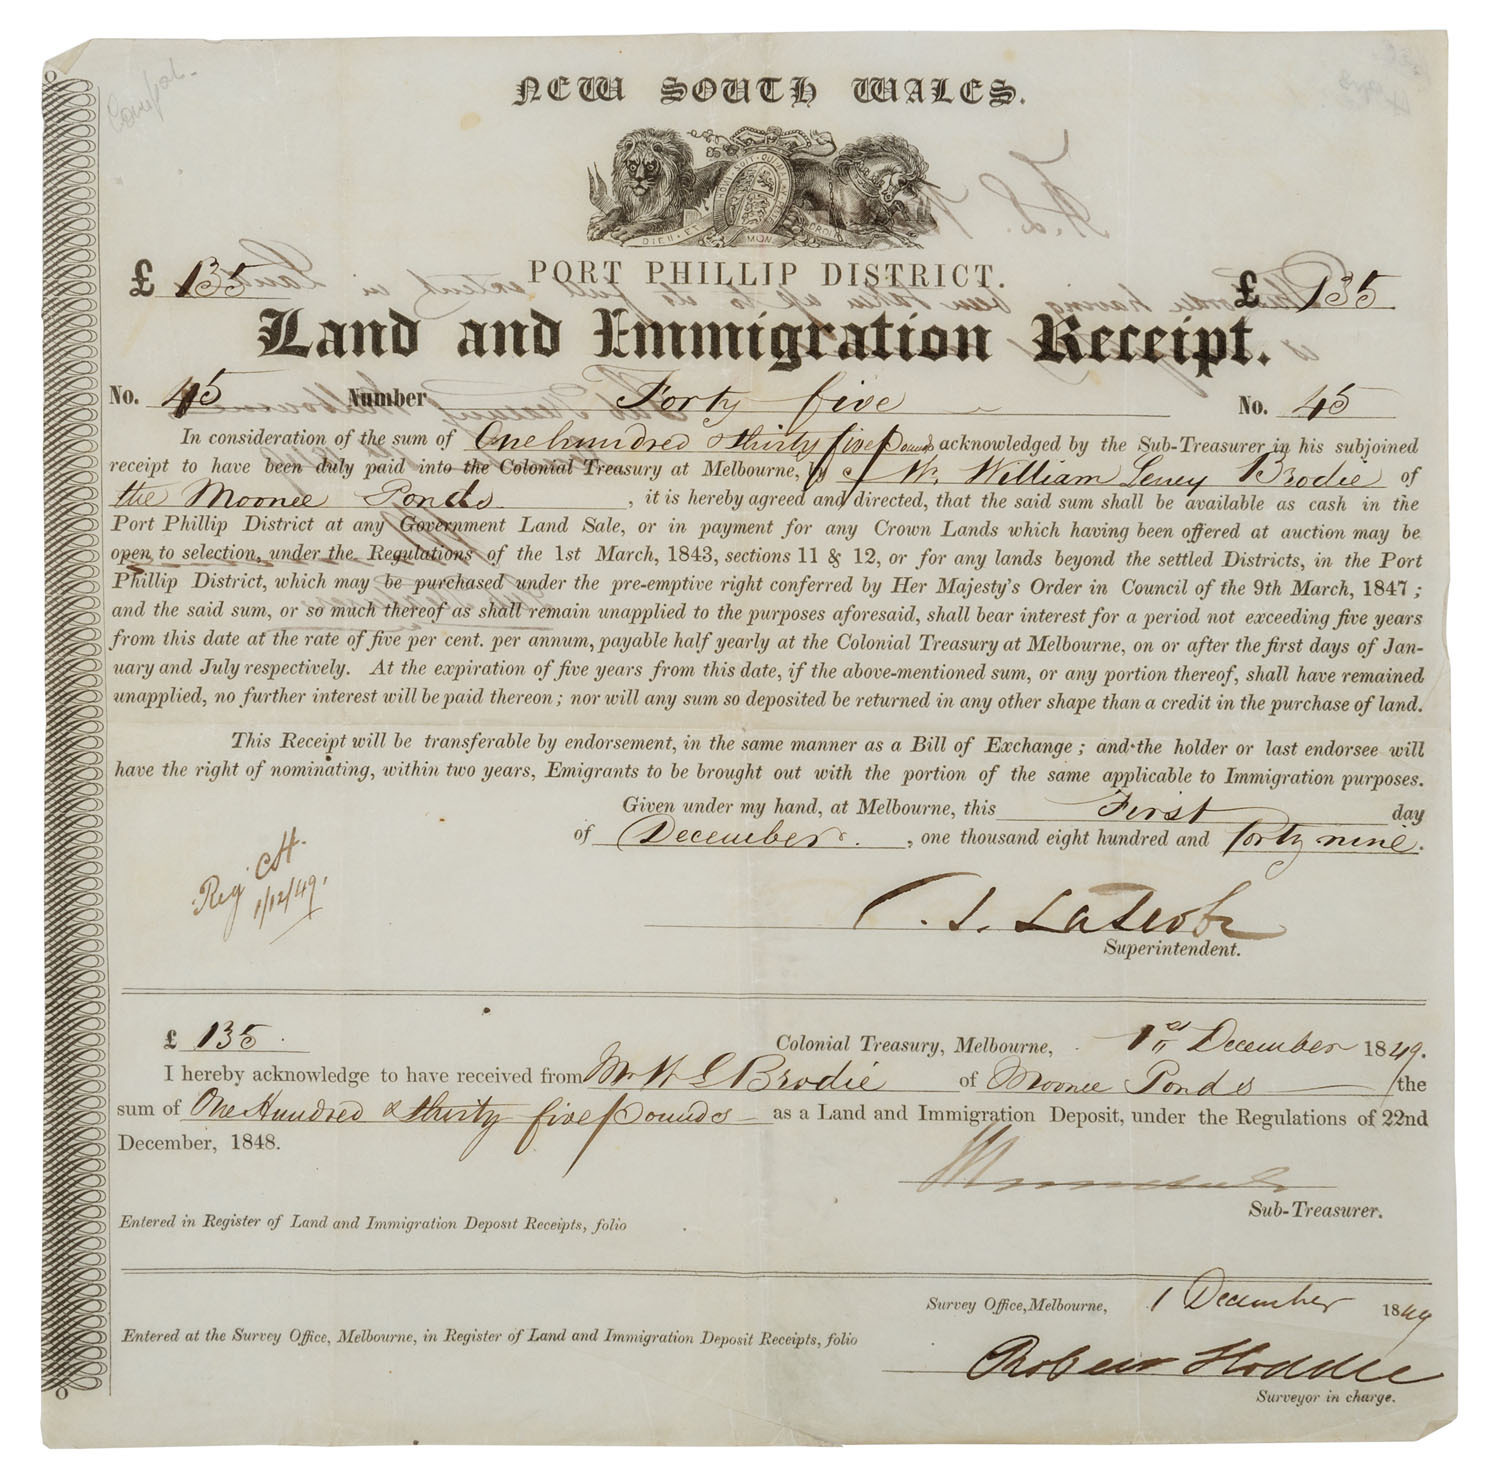 NEW SOUTH WALES.
HONI SOIT QUI
DIEU ET MON DROIT
PORT PHILLIP DISTRICT.
£ 135 £ 135
Land and Immigration Receipt.
No. 45 Number Forty five No. 45
In consideration of the sum of One hundred & thirty five pounds acknowledged by the Sub-Treasurer in his subjoined
receipt to have been duly paid into the Colonial Treasury at Melbourne, by Mr. William Leney Brodie of
the Moonee Ponds, it is hereby agreed and directed, that the said sum shall be available as cash in the
Port Phillip District at any Government Land Sale, or in payment for any Crown Lands which having been offered at auction may be
open to selection, under the Regulations of the 1st March, 1843, sections 11 & 12, or for any lands beyond the settled Districts, in the Port
Phillip District, which may be purchased under the pre-emptive right conferred by Her Majesty's Order in Council of the 9th March, 1847;
and the said sum, or so much thereof as shall remain unapplied to the purposes aforesaid, shall bear interest for a period not exceeding five years
from this date at the rate of five per cent. per annum, payable half yearly at the Colonial Treasury at Melbourne, on or after the first days of Jan-
uary and July respectively. At the expiration of five years from this date, if the above-mentioned sum, or any portion thereof, shall have remained
unapplied, no further interest will be paid thereon; nor will any sum so deposited be returned in any other shape than a credit in the purchase of land.
This Receipt will be transferable by endorsement, in the same manner as a Bill of Exchange; and the holder or last endorsee will
have the right of nominating, within two years, Emigrants to be brought out with the portion of the same applicable to Immigration purposes.
Given under my hand, at Melbourne, this First day
of December, one thousand eight hundred and forty nine.
Reg CH.
1/12/49
C. J. LaTrobe
Superintendent.
£ 135. Colonial Treasury, Melbourne, 1st December 1849.
I hereby acknowledge to have received from Mr W L Brodie of Moonee Ponds the
sum of One Hundred & thirty five pounds as a Land and Immigration Deposit, under the Regulations of 22nd
December, 1848.
Sub-Treasurer.
Entered in Register of Land and Immigration Deposit Receipts, folio
Survey Office, Melbourne, 1 December 1849
Entered at the Survey Office, Melbourne, in Register of Land and Immigration Deposit Receipts, folio
Robert Hoddle
Surveyor in charge.